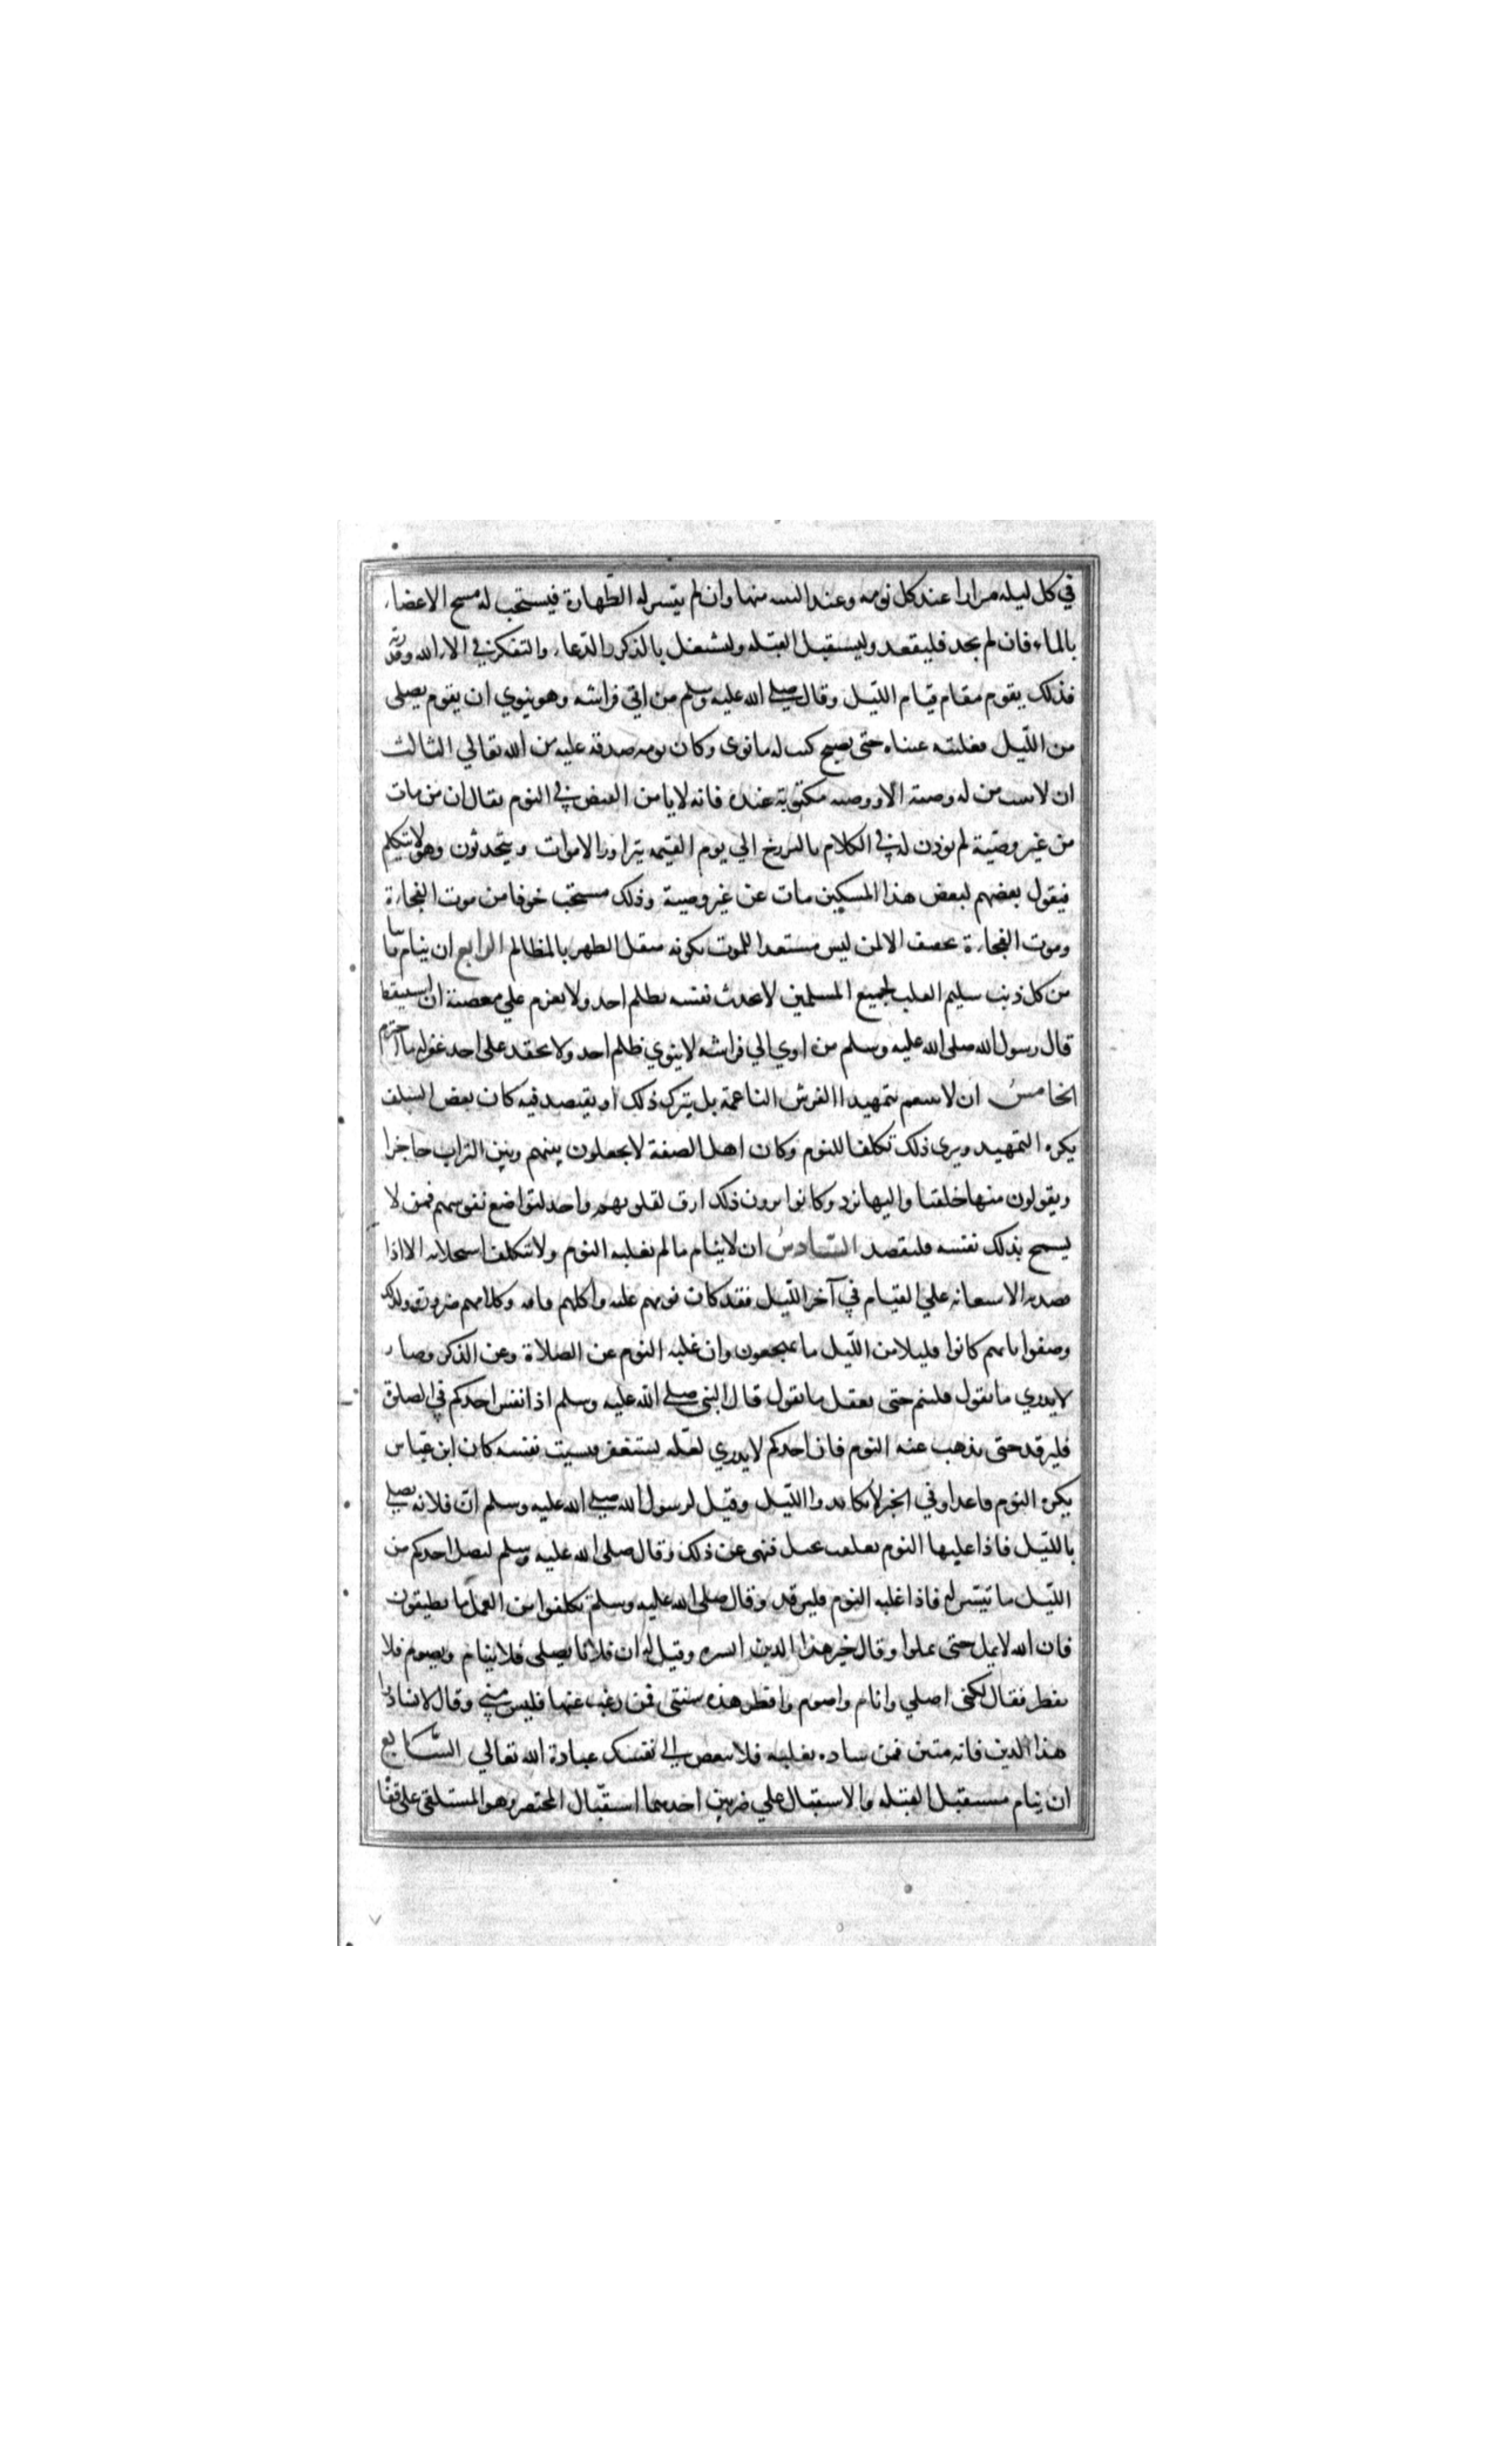 في كل ليله مرارا عند كل نومه وعند التنبه منها وان لم يتيسر له الطهارة فيستحب له مسح الاعضاء
بالماء فان لم يجد فليقعد وليستقبل القبله وليشتغل بالذكر والدعاء والتفكر في الاء الله وقدرته
فذلك يقوم مقام قيام الليل وقال صلى الله عليه وسلم من اتي فراشه وهو ينوي ان يقوم يصلي
من الليل فغلبته عيناه حتى يصبح كتب له ما نوى وكان نومه صدقة عليه من الله تعالي الثالث
ان لا يبيت من له وصية الا ووصيته مكتوبة عنده فانه لا يامن القبض في النوم يقال ان من مات
من غير وصية لم يوذن له في الكلام بالبرزخ الي يوم القيمه يتزاور الاموات ويتحدثون وهو لا يتكلم
فيقول بعضهم لبعض هذا المسكين مات عن غير وصية وذلك مستحب خوفا من موت الفجاءة
وموت الفجاءة تخفيف الا لمن ليس مستعدا للموت بكونه مثقل الظهر بالمظالم الرابع ان ينام تائبا
من كل ذنب سليم القلب لجميع المسلمين لا يحدث نفسه بظلم احد ولا يعزم علي معصية ان استيقظ
قال رسول الله صلى الله عليه وسلم من اوي الي فراشه لا ينوي ظلم احد ولا يحقد على احد غفر له ما اجترم
الخامس ان لا يتنعم بتمهيد االفرش الناعمة بل يترك ذلك او يقتصد فيه كان بعض السلف
يكره التمهيد ويرى ذلك تكلفا للنوم وكان اهل الصفة لا يجعلون بينهم وبين التراب حاجزا
ويقولون منها خلقنا واليها نرد وكانوا يرون ذلك ارق لقلوبهم واجد لتواضع نفوسهم فمن لا
يسمح بذلك نفسه فليقصد السادس ان لا ينام ما لم يغلبه النوم ولا يتكلف استجلابه الا اذا
قصد به الاستعانه علي القيام في آخر الليل فقد كان نومهم غلبه واكلهم فاقه وكلامهم ضرورة ولذلك
وصفوا بانهم كانوا قليلا من الليل ما يهجعون وان غلبه النوم عن الصلاة وعن الذكر وصار
لا يدري ما يقول فلينم حتى يعقل ما يقول قال النبي صلى الله عليه وسلم اذا نعس احدكم في الصلوة
فليرقد حتى يذهب عنه النوم فان احدكم لا يدري لعله يستغفر فيسب نفسه كان ابن عباس
يكره النوم قاعدا وفي الخبر لا تكابدوا الليل وقيل لرسول الله صلى الله عليه وسلم ان فلانه تصلي
بالليل فاذا غلبها النوم تعلقت بحبل فنهى عن ذلك وقال صلى الله عليه وسلم ليصل احدكم من
الليل ما تيسر له فاذا غلبه النوم فليرقد وقال صلى الله عليه وسلم تكلفوا من العمل ما تطيقون
فان الله لا يمل حتى تملوا وقال خير هذا الدين ايسره وقيل له ان فلانا يصلي فلا ينام ويصوم فلا
يفطر فقال لكني اصلي وانام واصوم وافطر هذه سنتي فمن رغب عنها فليس مني وقال لا تشادوا
هذا الدين فانه متين فمن شاده يغلبه فلا تبغض الى نفسك عبادة الله تعالي السابع
ان ينام مستقبل القبله والاستقبال علي ضربين احدهما استقبال المحتضر وهو المستلقى على قفاه